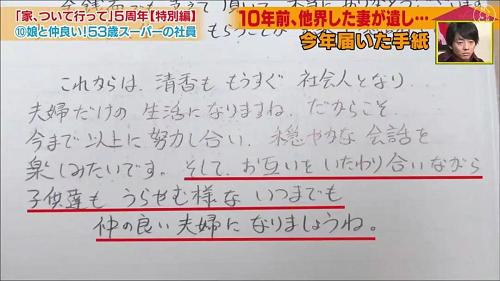 「家、ついて行って」5周年【特別編】
⑩娘と仲良い!53歳スーパーの社員
10年前、他界した妻が遺し…
今年届いた手紙
これからは、清香も もうすぐ 社会人となり
夫婦だけの 生活になりますね。だからこそ
今まで以上に 努力し合い、穏やかな 会話を
楽しみたいです。そして、お互いをいたわり合いながら
子供達も うらやむ様な いつまでも
仲の良い夫婦に なりましょうね。